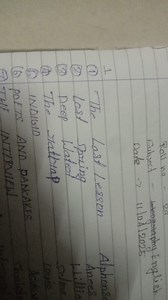 Roll no.
Subject - English
Date → 11/04/2025
1
① The Last Lesson Alphons
② Lost Spring
③ Deep Water
④ The Rattrap
⑤ INDIGO
⑥ POETS AND PANCAKES
⑦ THE INTERVIEW